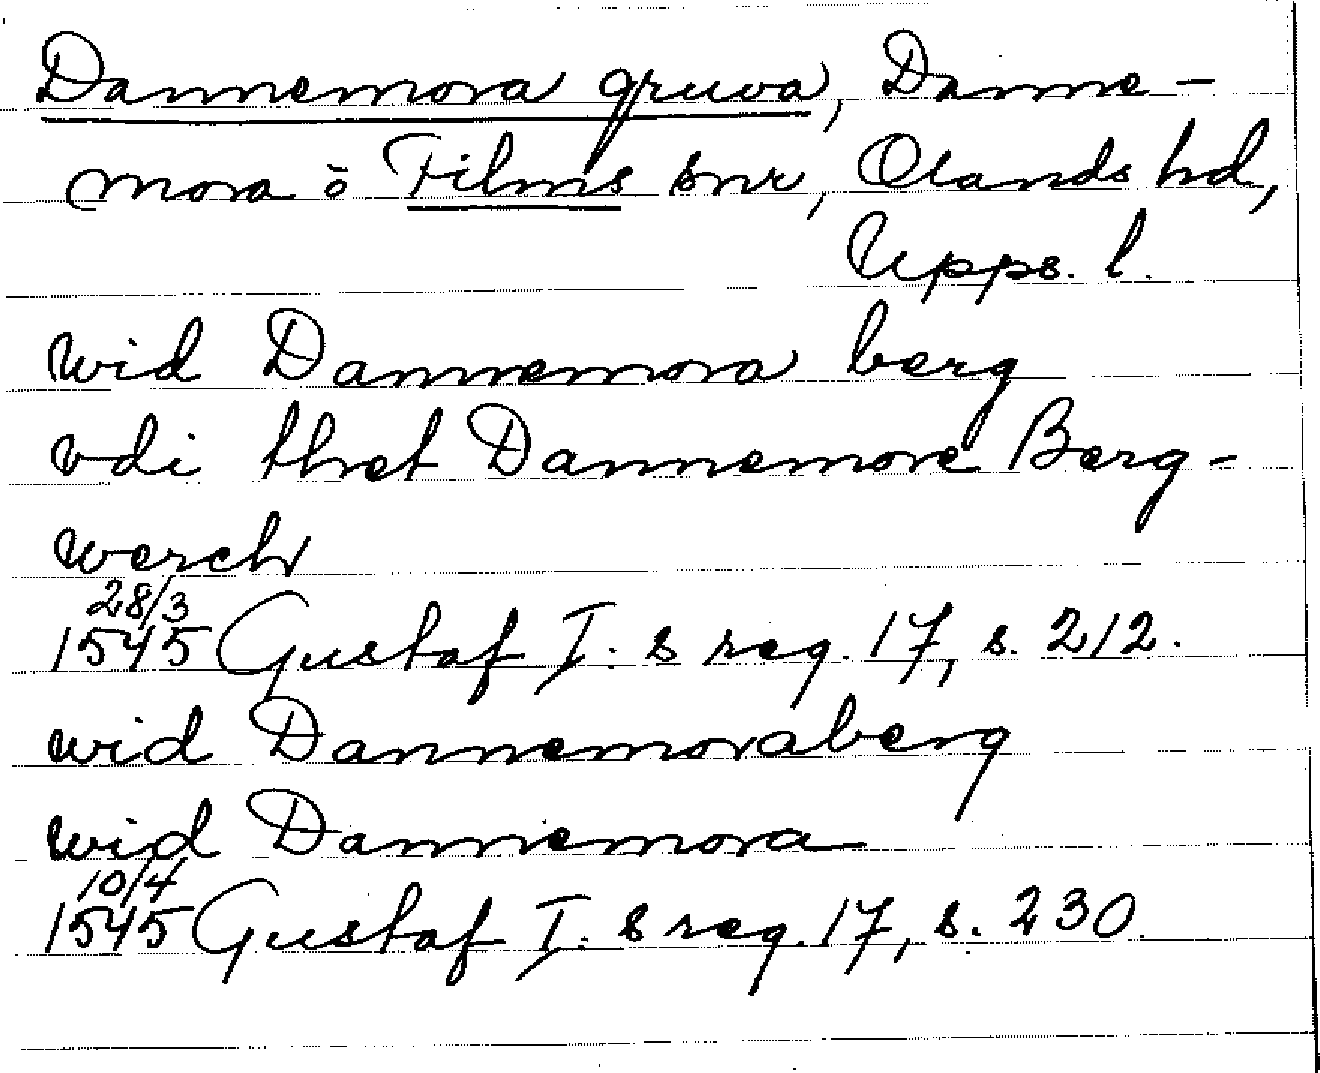 Dannemora gruva, Danne-
mora o Films snr, Olands hd,
Upps. l.
wid Dannemora berg
vdi thet Dannemore Berg-
werch
28/3
1545 Gustaf I:s reg. 17, s. 212.
wid Dannemoraberg
wid Dannemora
10/4
1545 Gustaf I:s reg. 17, s. 230.